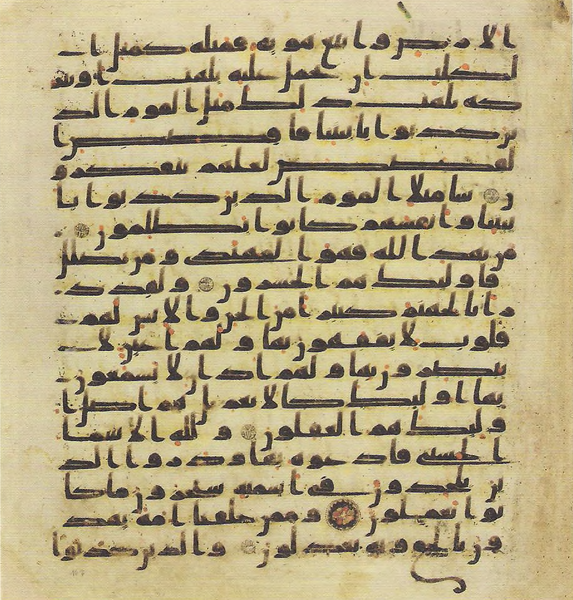 الارض واتبع هويه فمثله كمثل ا
لكلب ان تحمل عليه يلهث او تتر
كه يلهث ذلك مثل القوم الذ
ين كذبوا بايتنا فاقصص ا
لقصص لعلهم يتفكرو
ن سا مثلا القوم الذين كذبوا بايا
تنا وانفسهم كانوا يظلمون
من يهد الله فهو المهتدي ومن يضلل
فاوليك هم الخسرون ولقد ذ
رانا لجهنم كثيرا من الجن والانس لهم
قلوب لا يفقهون بها ولهم اعين لا
يبصرون بها ولهم اذان لا يسمعون
بها اوليك كالانعم بل هم اضل ا
وليك هم الغفلون ولله الاسما
الحسنى فادعوه بها وذروا الذ
ين يلحدون في اسميه سيجزون ما كا
نوا يعملون وممن خلقنا امة يهد
ون بالحق وبه يعدلون والذين كذبوا